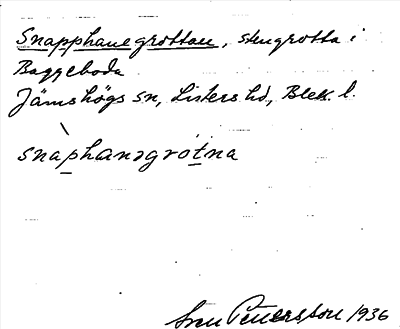 Snapphanegrottan, stengrotta i
Baggeboda
Jämshögs sn, Listers hd, Blek. l.
snaphanəgrotna
Sven Petersson 1936